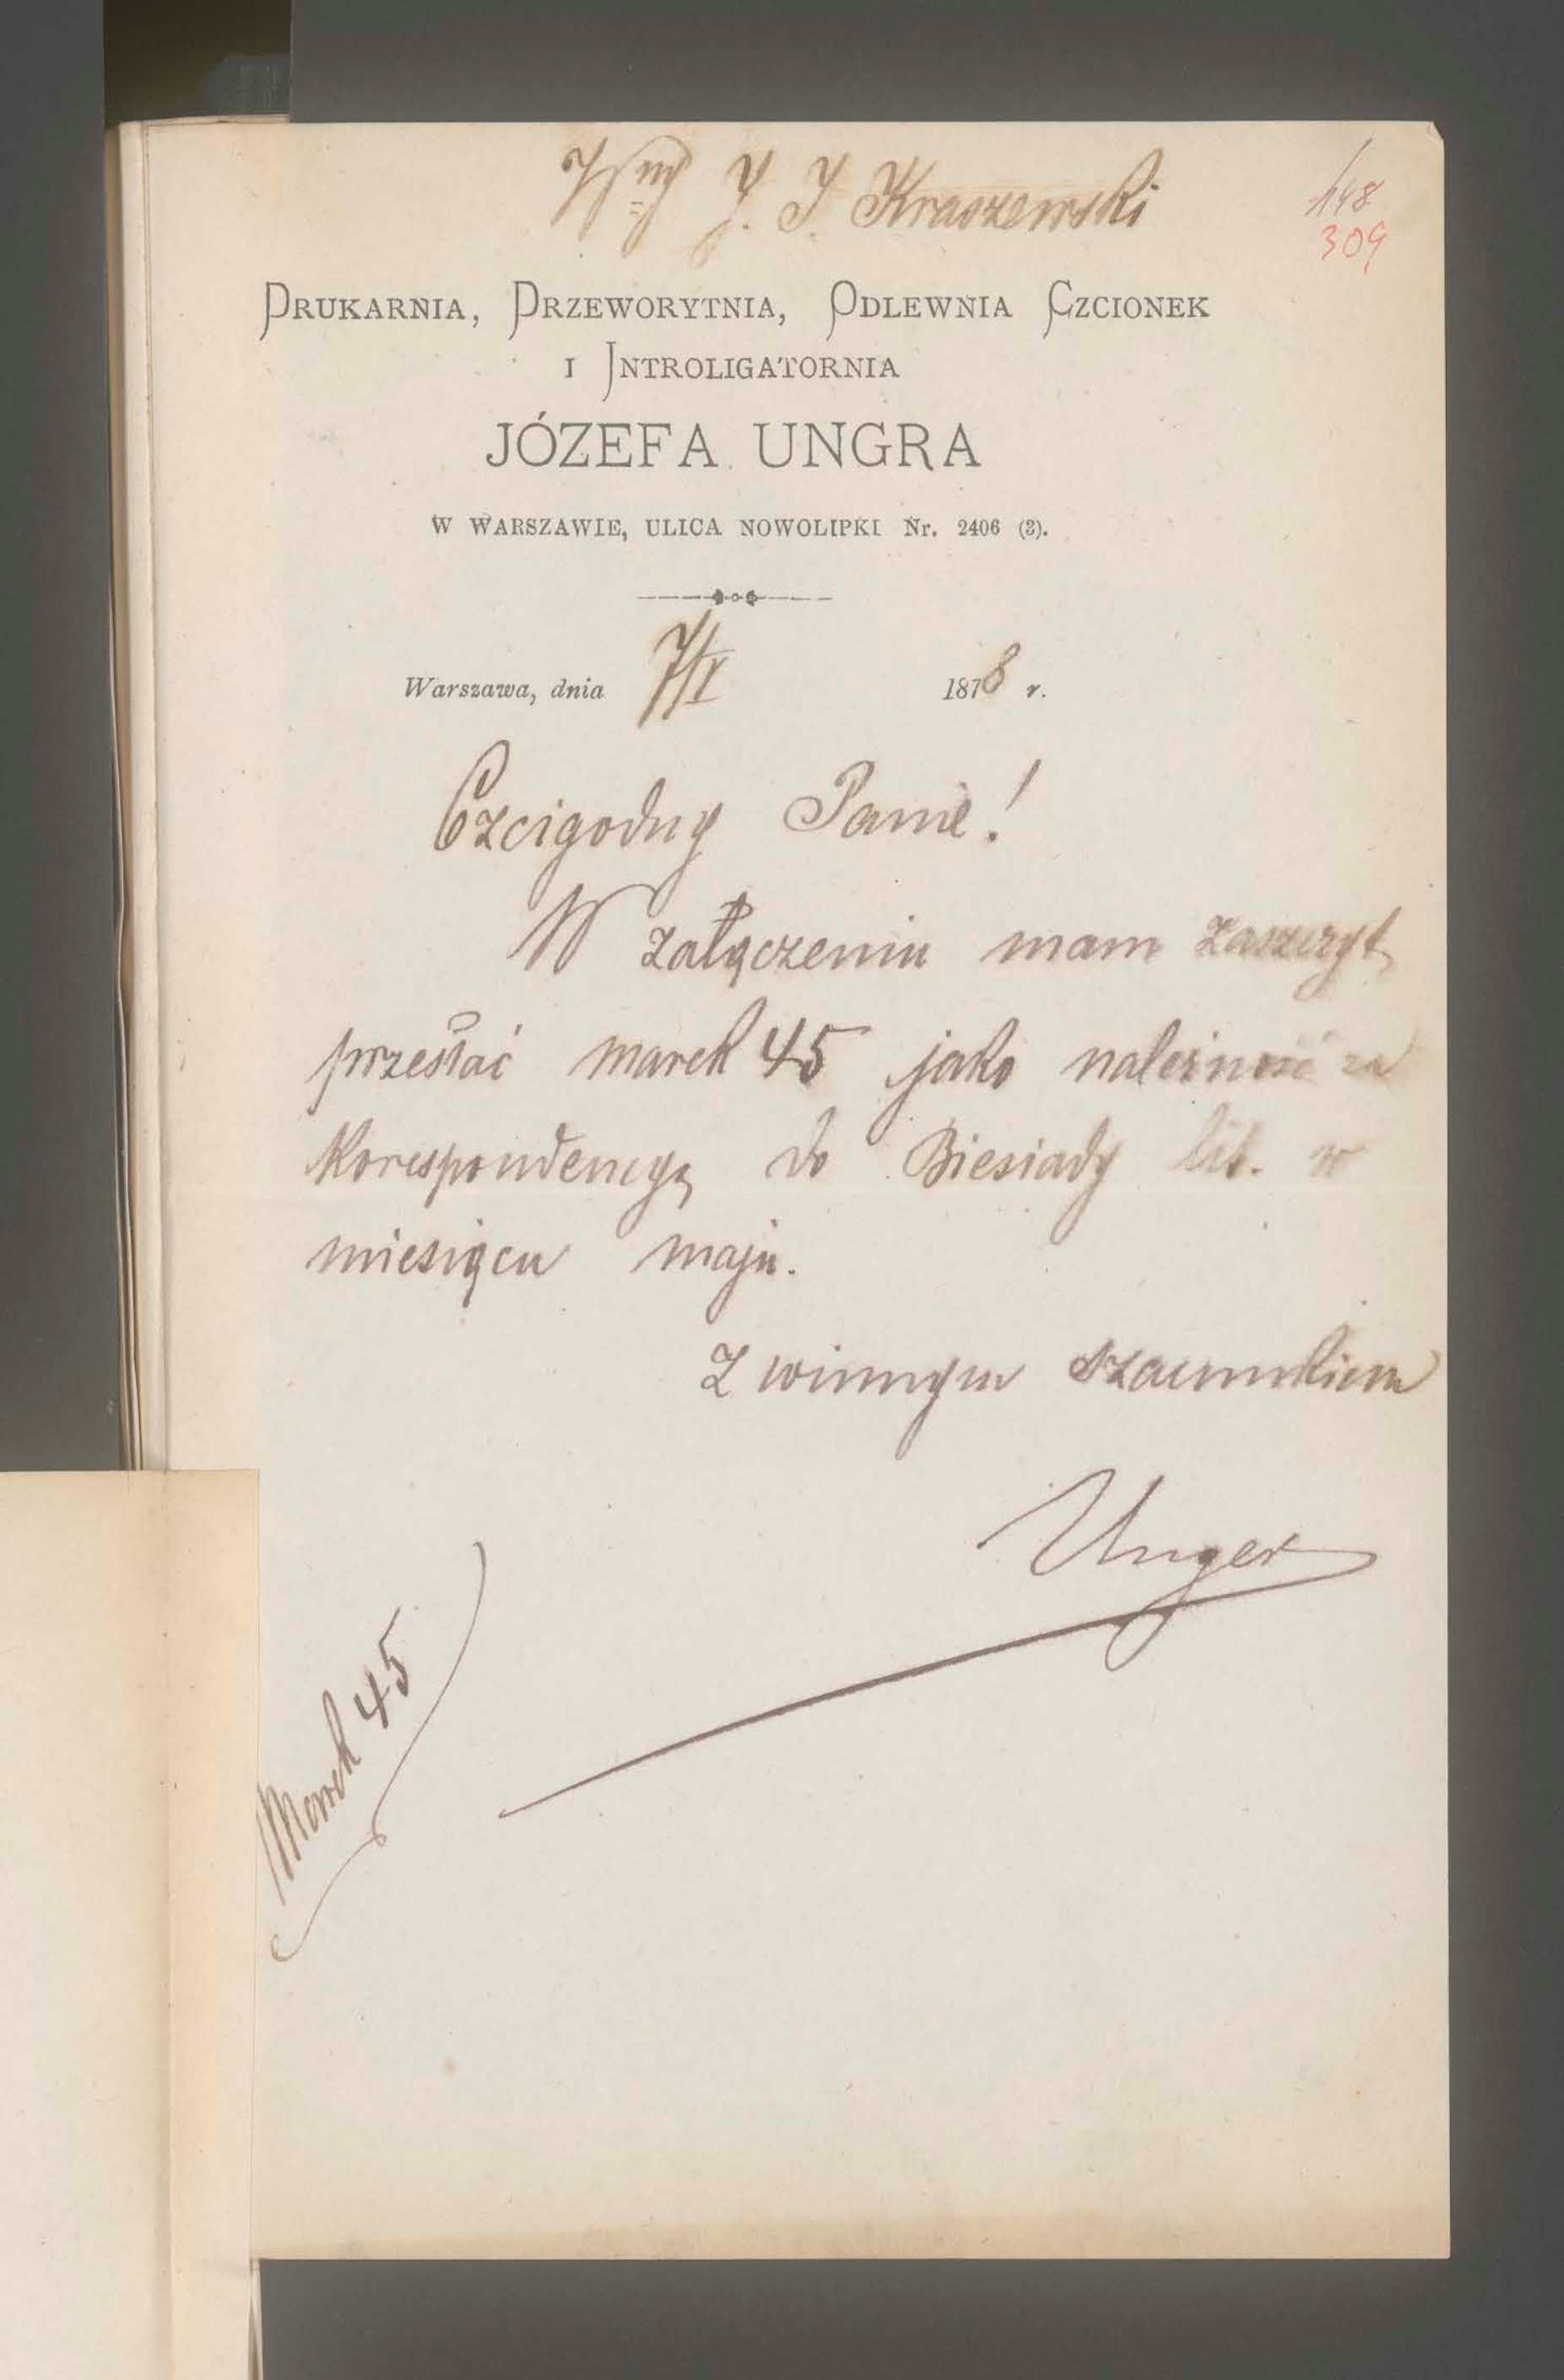 Wny J. I. Kraszewski
148
309
Drukarnia, Przeworytnia, Odlewnia Czcionek
i Introligatornia
JÓZEFA UNGRA
W WARSZAWIE, ULICA NOWOLIPKI Nr. 2406 (3).
Warszawa, dnia 7/ 1878 r.
Czcigodny Panie!
W załączeniu mam zaszczyt
przesłać marek 45 jako należność za
Korespondencyą do Biesiady lit. w
miesiącu maju.
Z winnym szacunkiem
Unger
Marek 45